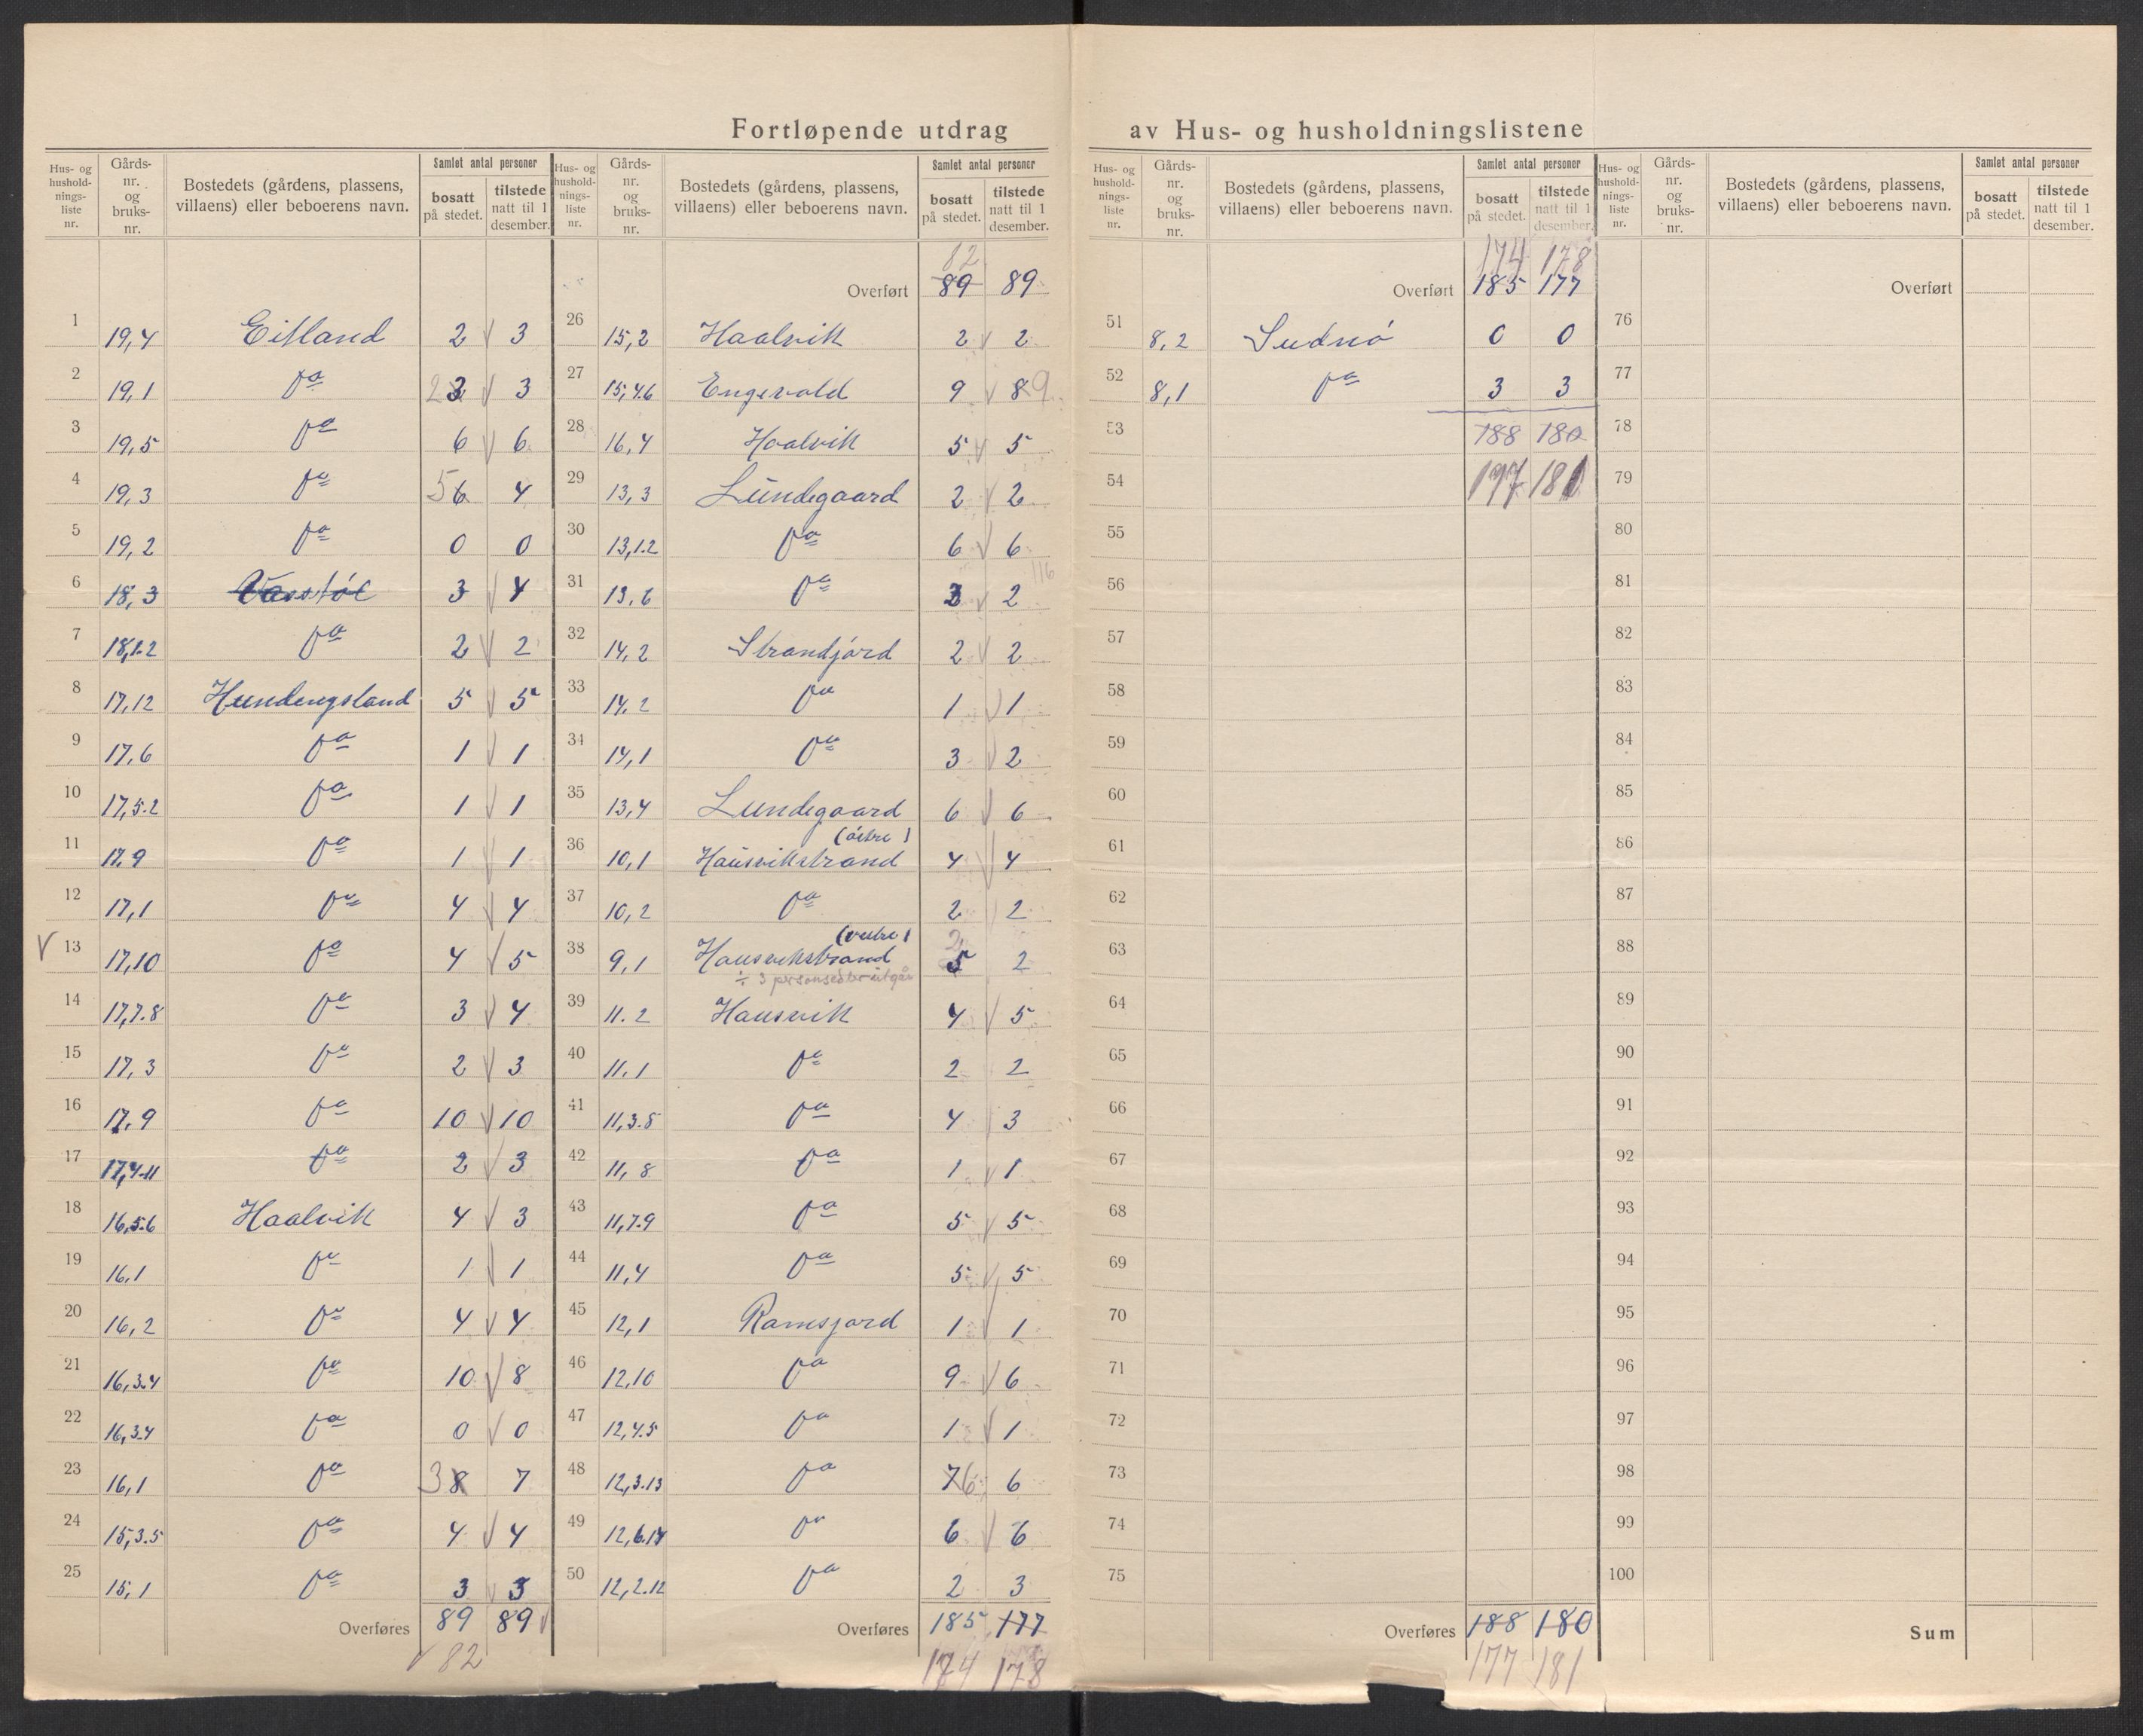 Fortløpende utdrag av Hus- og husholdningslistene
Hus- og hushold-nings-liste nr. Gårds-nr. og bruks-nr. Bostedets (gårdens, plassens, villaens) eller beboerens navn. Samlet antal personer bosatt på stedet. tilstede natt til 1 desember.
1 19,4 Eitland 2 3
2 19,1 do 2 3 3
3 19,5 do 6 6
4 19,3 do 5 6 4
5 19,2 do 0 0
6 18,3 Vasstøl 3 4
7 18,1.2 do 2 2
8 17,12 Hundingsland 5 5
9 17,6 do 1 1
10 17,5.2 do 1 1
11 17,9 do 1 1
12 17,1 do 4 4
V 13 17,10 do 4 5
14 17,7.8 do 3 4
15 17,3 do 2 3
16 17,9 do 10 10
17 17,4-11 do 2 3
18 16,5.6 Haalvik 4 3
19 16,1 do 1 1
20 16,2 do 4 4
21 16,3.4 do 10 8
22 16,3.4 do 0 0
23 16,1 do 3 8 7
24 15,3.5 do 4 4
25 15,1 do 3 3
Overføres 89 89
82
Hus- og hushold-nings-liste nr. Gårds-nr. og bruks-nr. Bostedets (gårdens, plassens, villaens) eller beboerens navn. Samlet antal personer bosatt på stedet. tilstede natt til 1 desember.
82
Overført 89 89
26 15,2 Haalvik 2 2
27 15,4.6 Engevold 9 8 9
28 16,4 Haalvik 5 5
29 13,3 Lundegaard 2 2
30 13,1.2 do 6 6
116
31 13,6 do 3 2
32 14,2 Strandjord 2 2
33 14,2 do 1 1
34 14,1 do 3 2
35 13,4 Lundegaard 6 6
(östre)
36 10,1 Hausvikstrand 4 4
37 10,2 do 2 2
(vestre) 2
38 9,1 Hausvikstrand 5 2
÷ 3 personsedler utgår
39 11.2 Hausvik 4 5
40 11.1 do 2 2
41 11,3.5 do 4 3
42 11,8 do 1 1
43 11,7.9 do 5 5
44 11,4 do 5 5
45 12,1 Ramsjord 1 1
46 12,10 do 9 6
47 12,4.5 do 1 1
48 12,3.13 do 7 6 6
49 12,6.14 do 6 6
50 12,2.12 do 2 3
Overføres 185 177
174 178
Hus- og hushold-nings-liste nr. Gårds-nr. og bruks-nr. Bostedets (gårdens, plassens, villaens) eller beboerens navn. Samlet antal personer bosatt på stedet. tilstede natt til 1 desember.
174 178
Overført 185 177
51 8,2 Sudnö 0 0
52 8,1 do 3 3
53 188 180
54 197 181
55
56
57
58
59
60
61
62
63
64
65
66
67
68
69
70
71
72
73
74
75
Overføres 188 180
177 181
Hus- og hushold-nings-liste nr. Gårds-nr. og bruks-nr. Bostedets (gårdens, plassens, villaens) eller beboerens navn. Samlet antal personer bosatt på stedet. tilstede natt til 1 desember.
Overført
76
77
78
79
80
81
82
83
84
85
86
87
88
89
90
91
92
93
94
95
96
97
98
99
100
Sum